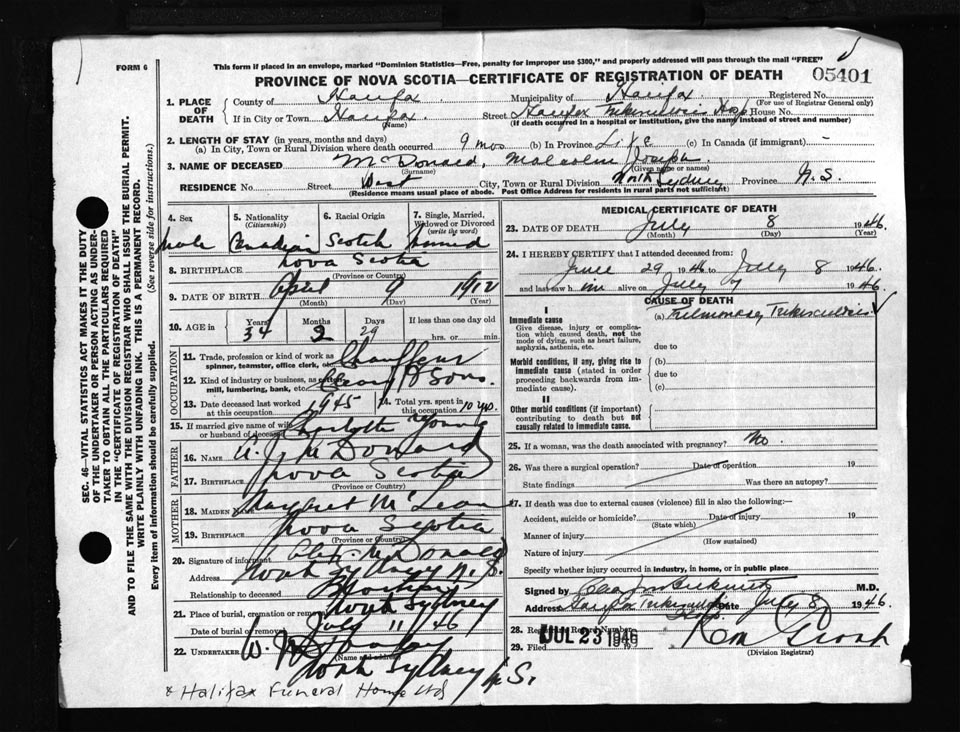 FORM 6
This form if placed in an envelope, marked "Dominion Statistics—Free, penalty for improper use $300," and properly addressed will pass through the mail "FREE"
PROVINCE OF NOVA SCOTIA—CERTIFICATE OF REGISTRATION OF DEATH
05401
1. PLACE OF DEATH
County of Halifax Municipality of Halifax Registered No.
(For use of Registrar General only)
If in City or Town Halifax Street Halifax Tuberculosis Hosp House No.
(Name) (If death occurred in a hospital or institution, give the name instead of street and number)
2. LENGTH OF STAY (in years, months and days)
(a) In City, Town or Rural Division where death occurred 9 mos (b) In Province Life (c) In Canada (if immigrant) -
3. NAME OF DECEASED McDonald, Malcolm Joseph
(Surname) (Given name or names)
RESIDENCE No. Street City, Town or Rural Division North Sydney Province N.S.
(Residence means usual place of abode. Post Office Address for residents in rural parts not sufficient)
SEC. 46—VITAL STATISTICS ACT MAKES IT THE DUTY
OF THE UNDERTAKER OR PERSON ACTING AS UNDER-
TAKER TO OBTAIN ALL THE PARTICULARS REQUIRED
IN THE "CERTIFICATE OF REGISTRATION OF DEATH"
AND TO FILE THE SAME WITH THE DIVISION REGISTRAR WHO SHALL ISSUE THE BURIAL PERMIT.
WRITE PLAINLY WITH UNFADING INK. THIS IS A PERMANENT RECORD.
Every item of Information should be carefully supplied. (See reverse side for instructions.)
4. Sex
Male
5. Nationality
(Citizenship)
Canadian
6. Racial Origin
Scotch
7. Single, Married,
Widowed or Divorced
(write the word)
8. BIRTHPLACE Nova Scotia
(Province or Country)
9. DATE OF BIRTH April 9 1912
(Month) (Day) (Year)
10. AGE in Years Months Days If less than one day old
34 2 29 hrs. or min.
OCCUPATION
11. Trade, profession or kind of work as
spinner, teamster, office clerk, etc. Chauffeur
12. Kind of industry or business, as cotton
mill, lumbering, bank, etc. & Sons.
13. Date deceased last worked
at this occupation 1945
14. Total yrs. spent in
this occupation 10 yrs.
15. If married give name of wife
or husband of deceased Charlotte Young
FATHER
16. Name A. J. McDonald
17. Birthplace Nova Scotia
(Province or Country)
MOTHER
18. Maiden Margaret McLean
19. Birthplace Nova Scotia
(Province or Country)
20. Signature of informant McDonald
Address North Sydney N.S.
Relationship to deceased Brother
21. Place of burial, cremation or removal North Sydney
Date of burial or removal July 11 46
22. UNDERTAKER W.
(Name and address)
North Sydney N.S.
& Halifax Funeral Home Ltd
MEDICAL CERTIFICATE OF DEATH
23. DATE OF DEATH July 8 1946.
(Month) (Day) (Year)
24. I HEREBY CERTIFY that I attended deceased from:
June 29 1946 to July 8 1946.
and last saw him alive on July 7 1946.
CAUSE OF DEATH
Immediate cause
Give disease, injury or complica-
tion which caused death, not the
mode of dying, such as heart failure,
asphyxia, asthenia, etc.
(a) Pulmonary Tuberculosis
due to
Morbid conditions, if any, giving rise to
immediate cause (stated in order
proceeding backwards from im-
mediate cause).
(b)
due to
(c)
II
Other morbid conditions (if important)
contributing to death but not
causally related to immediate cause.
25. If a woman, was the death associated with pregnancy? No
26. Was there a surgical operation? Date of operation 19
State findings Was there an autopsy?
27. If death was due to external causes (violence) fill in also the following:—
Accident, suicide or homicide? Date of injury 19
(State which)
Manner of injury
(How sustained)
Nature of injury
Specify whether injury occurred in industry, in home, or in public place
Signed by M.D.
Address Halifax Tuberculosis Hosp. Date July 8 1946.
28. Record Number
29. Filed JUL 23 1946
(Division Registrar)